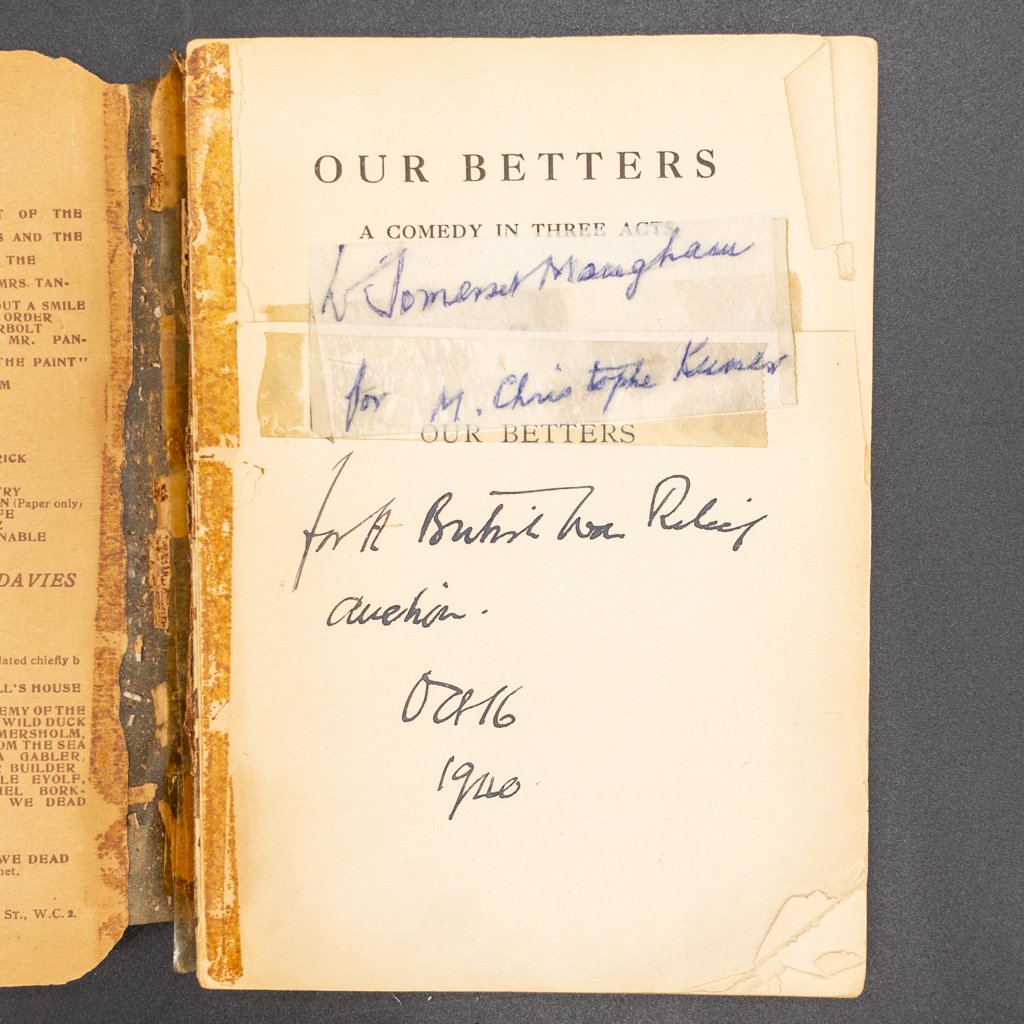 T OF THE
S AND THE
THE
MRS. TAN-
OUT A SMILE
ORDER
RBOLT
MR. PAN-
THE PAINT"
M
RICK
TRY
N (Paper only)
FE
Z
NABLE
DAVIES
lated chiefly b
LL'S HOUSE
EMY OF THE
WILD DUCK
MERSHOLM,
OM THE SEA
A GABLER,
R BUILDER
LE EYOLF,
IEL BORK-
WE DEAD
WE DEAD
net.
ST., W.C. 2.
OUR BETTERS
A COMEDY IN THREE ACTS
W. Somerset Maugham
for M. Christophe
OUR BETTERS
for British War Relief
auction.
Oct 16
1940